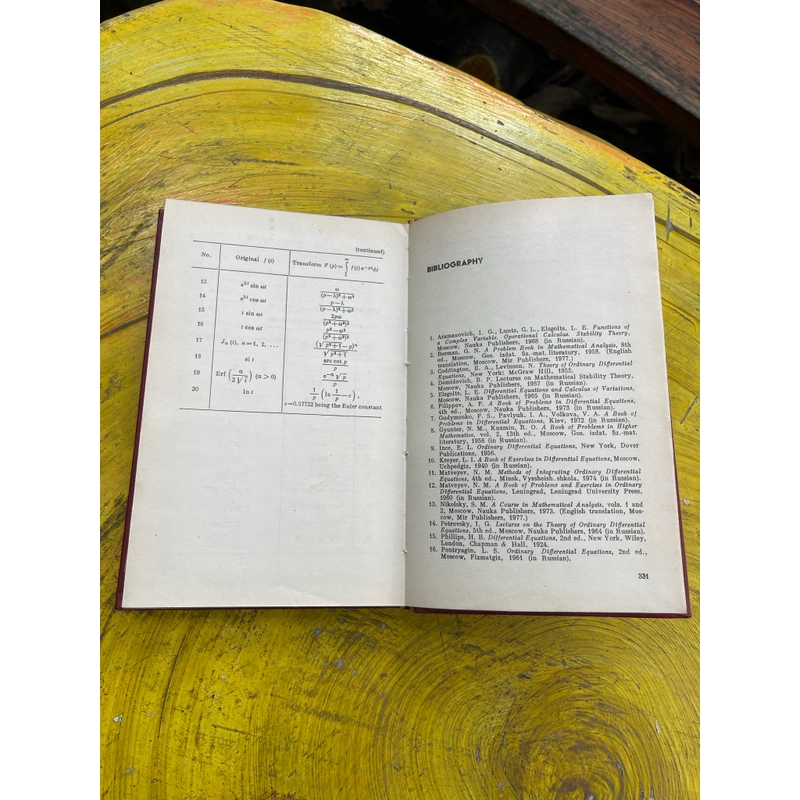 (continued)
No. Original f (t) Transform F (p) = ∫₀^∞ f (t) e^{-pt} dt
13 e^{λt} sin ωt ω/((p−λ)²+ω²)
14 e^{λt} cos ωt (p−λ)/((p−λ)²+ω²)
15 t sin ωt 2pω/(p²+ω²)²
16 t cos ωt (p²−ω²)/(p²+ω²)²
17 Jₙ (t), n=1, 2, ... (√(p²+1)−p)ⁿ/√(p²+1)
18 si t arc cot p/p
19 Erf (α/(2√t)) (α > 0) e^{−α√p}/p
20 ln t 1/p (ln 1/p −c),
c=0.57722 being the Euler constant
BIBLIOGRAPHY
1. Aramanovich, I. G., Lunts, G. L., Elsgolts, L. E. Functions of
a Complex Variable. Operational Calculus. Stability Theory,
Moscow, Nauka Publishers, 1968 (in Russian).
2. Berman, G. N. A Problem Book in Mathematical Analysis, 8th
ed., Moscow, Gos. izdat. fiz.-mat. literatury, 1958. (English
translation, Moscow, Mir Publishers, 1977.)
3. Coddington, E. A., Levinson, N. Theory of Ordinary Differential
Equations, New York: McGraw Hill, 1955.
4. Demidovich, B. P. Lectures on Mathematical Stability Theory,
Moscow, Nauka Publishers, 1967 (in Russian).
5. Elsgolts, L. E. Differential Equations and Calculus of Variations,
Moscow, Nauka Publishers, 1965 (in Russian).
6. Filippov, A. F. A Book of Problems in Differential Equations,
4th ed., Moscow, Nauka Publishers, 1973 (in Russian).
7. Gudymenko, F. S., Pavlyuk, I. A., Volkova, V. A. A Book of
Problems in Differential Equations, Kiev, 1972 (in Russian).
8. Gyunter, N. M., Kuzmin, R. O. A Book of Problems in Higher
Mathematics, vol. 2, 13th ed., Moscow, Gos. izdat. fiz.-mat.
literatury, 1958 (in Russian).
9. Ince, E. L. Ordinary Differential Equations, New York, Dover
Publications, 1956.
10. Kreyer, L. I. A Book of Exercises in Differential Equations, Moscow,
Uchpedgiz, 1940 (in Russian).
11. Matveyev, N. M. Methods of Integrating Ordinary Differential
Equations, 4th ed., Minsk, Vyssheish. shkola, 1974 (in Russian).
12. Matveyev, N. M. A Book of Problems and Exercises in Ordinary
Differential Equations, Leningrad, Leningrad University Press,
1960 (in Russian).
13. Nikolsky, S. M. A Course in Mathematical Analysis, vols. 1 and
2, Moscow, Nauka Publishers, 1973. (English translation, Mos-
cow, Mir Publishers, 1977.)
14. Petrovsky, I. G. Lectures on the Theory of Ordinary Differential
Equations, 5th ed., Moscow, Nauka Publishers, 1964 (in Russian).
15. Phillips, H. B. Differential Equations, 2nd ed., New York, Wiley,
London, Chapman & Hall, 1924.
16. Pontryagin, L. S. Ordinary Differential Equations, 2nd ed.,
Moscow, Fizmatgiz, 1961 (in Russian).
331